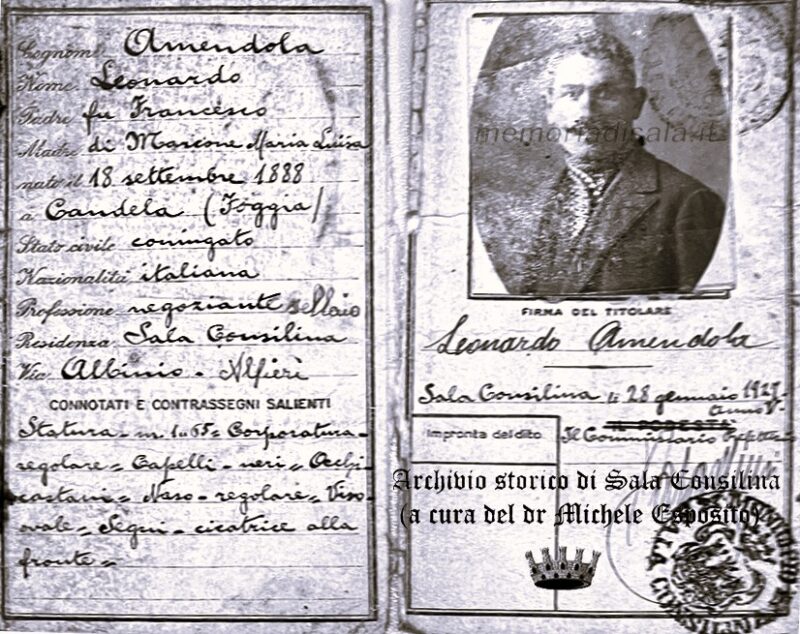 Cognome Amendola
Nome Leonardo
Padre fu Francesco
Madre di Marcone Maria Luisa
nato il 18 settembre 1888
a Candela (Foggia)
Stato civile coniugato
Nazionalità italiana
Professione negoziante sellaio
Residenza Sala Consilina
Via Albinio - Alfieri
CONNOTATI E CONTRASSEGNI SALIENTI
Statura - m. 1.65 - Corporatura -
regolare = Capelli - neri = Occhi -
castani = Naso - regolare = Viso -
ovale = Segni - cicatrice alla
fronte =
memoriadisala.it
FIRMA DEL TITOLARE
Leonardo Amendola
Sala Consilina li 28 gennaio 1927
Anno V.
IL PODESTÀ
Impronta del dito
Il Commissario
Archivio storico di Sala Consilina
(a cura del dr Michele Esposito)